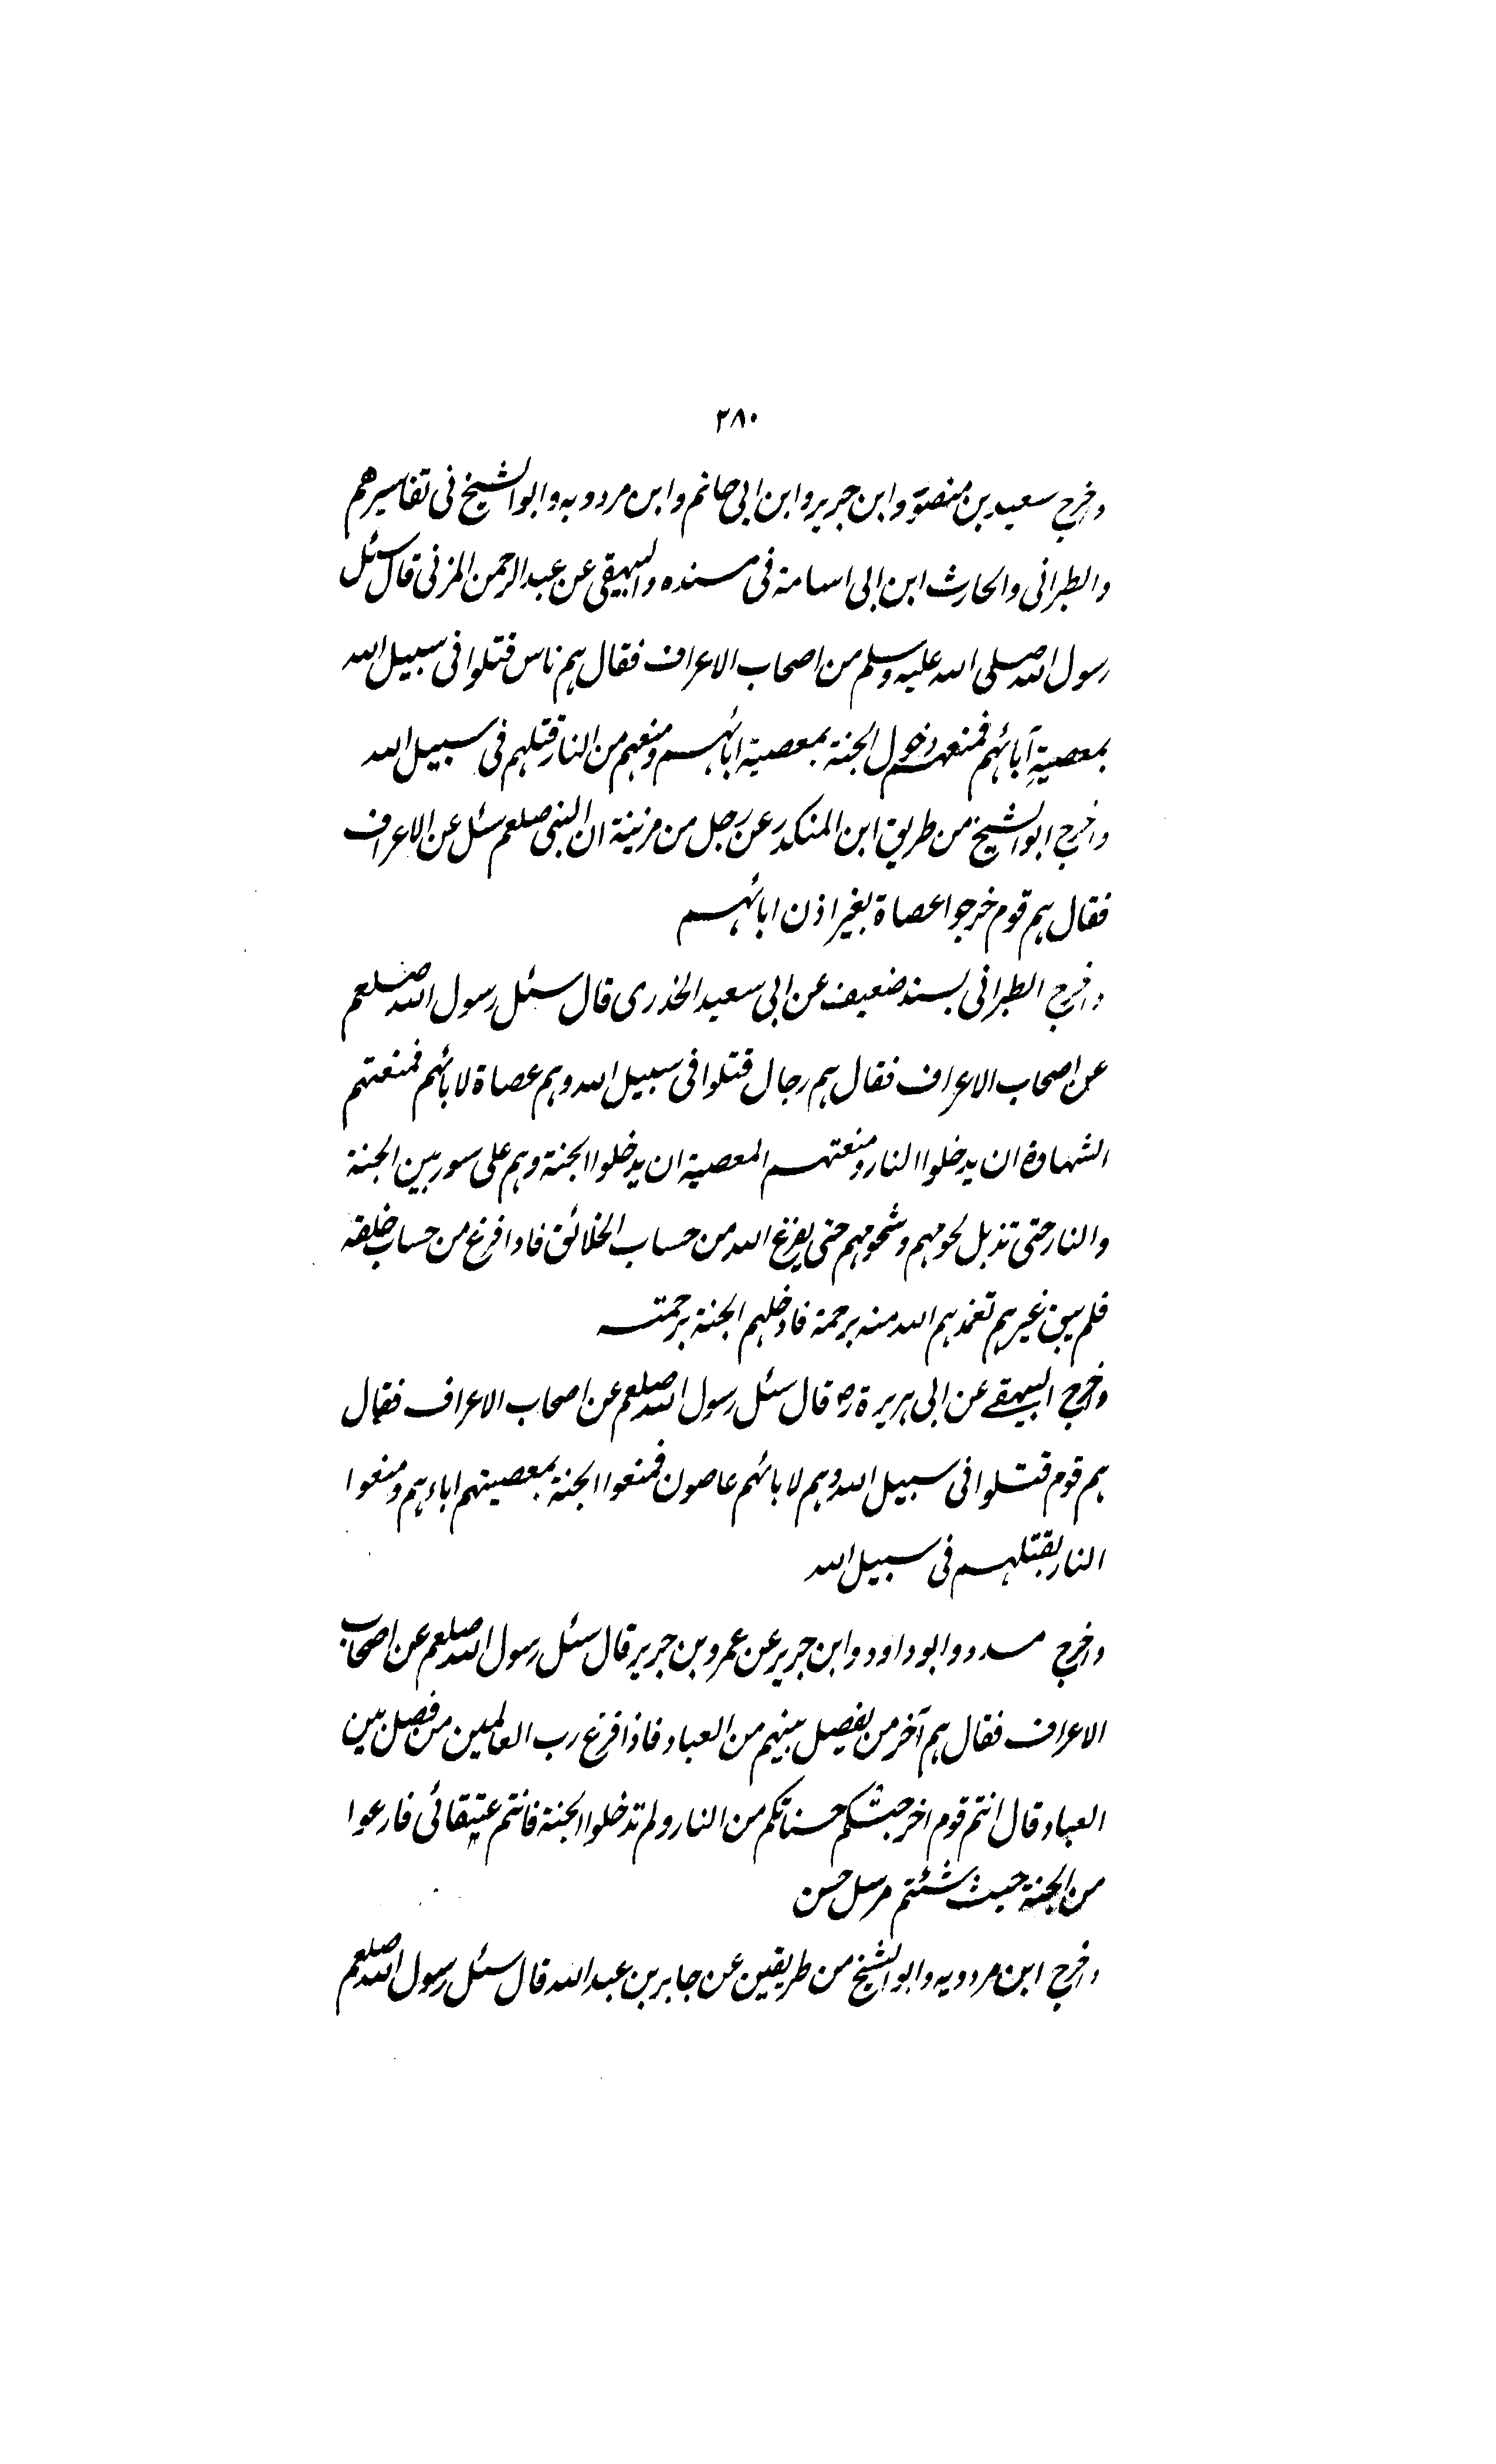 ٣٨٠
واخرج سعيد بن منصور وابن جرير وابن ابى حاتم وابن مردويه وابو الشيخ فى تفاسيرهم
والطبرانى والحارث ابن ابى اسامة فى مسنده والبيهقى عن عبد الرحمن المزنى قال سئل
رسول الله صلى الله عليه وسلم من اصحاب الاعراف فقال هم ناس قتلوا فى سبيل الله
بمعصيةِ آبائهم فمنعهم دخول الجنة بمعصية ابائهم ومنعهم من النار قتلهم فى سبيل الله
واخرج ابو الشيخ من طريق ابن المنكدر عن رجل من مزينة ان النبى صلعم سئل عن الاعراف
فقال هم قوم خرجوا عصاة بغير اذن ابائهم
واخرج الطبرانى بسند ضعيف عن ابى سعيد الخدرى قال سئل رسول الله صلعم
عن اصحاب الاعراف فقال هم رجال قتلوا فى سبيل الله وهم عصاة لابائهم فمنعتهم
الشهادة ان يدخلوا النار ومنعتهم المعصية ان يدخلوا الجنة وهم على سور بين الجنة
والنار حتى تذبل لحومهم وشحومهم حتى يفرغ الله من حساب الخلائق فاذا فرغ من حساب خلقه
فلم يبق غيرهم تغمدهم الله منه برحمة فادخلهم الجنة برحمته
واخرج البيهقى عن ابى هريرة رض قال سئل رسول الله صلعم عن اصحاب الاعراف فقال
هم قوم قتلوا فى سبيل الله وهم لابائهم عاصون فمنعوا الجنة بمعصيتهم اباءهم ومنعوا
النار بقتلهم فى سبيل الله
واخرج مسدد وابو داود وابن جرير عن عمرو بن جرير قال سئل رسول الله صلعم عن اصحاب
الاعراف فقال هم آخر من يفصل بينهم من العباد فاذا فرغ رب العالمين من فصل بين
العباد قال انتم قوم اخرجتكم حسناتكم من النار ولم تدخلوا الجنة فانتم عتيقائى فارعوا
من الجنة حيث شئتم مرسل حسن
واخرج ابن مردويه وابو الشيخ من طريقين عن جابر بن عبد الله قال سئل رسول الله صلعم